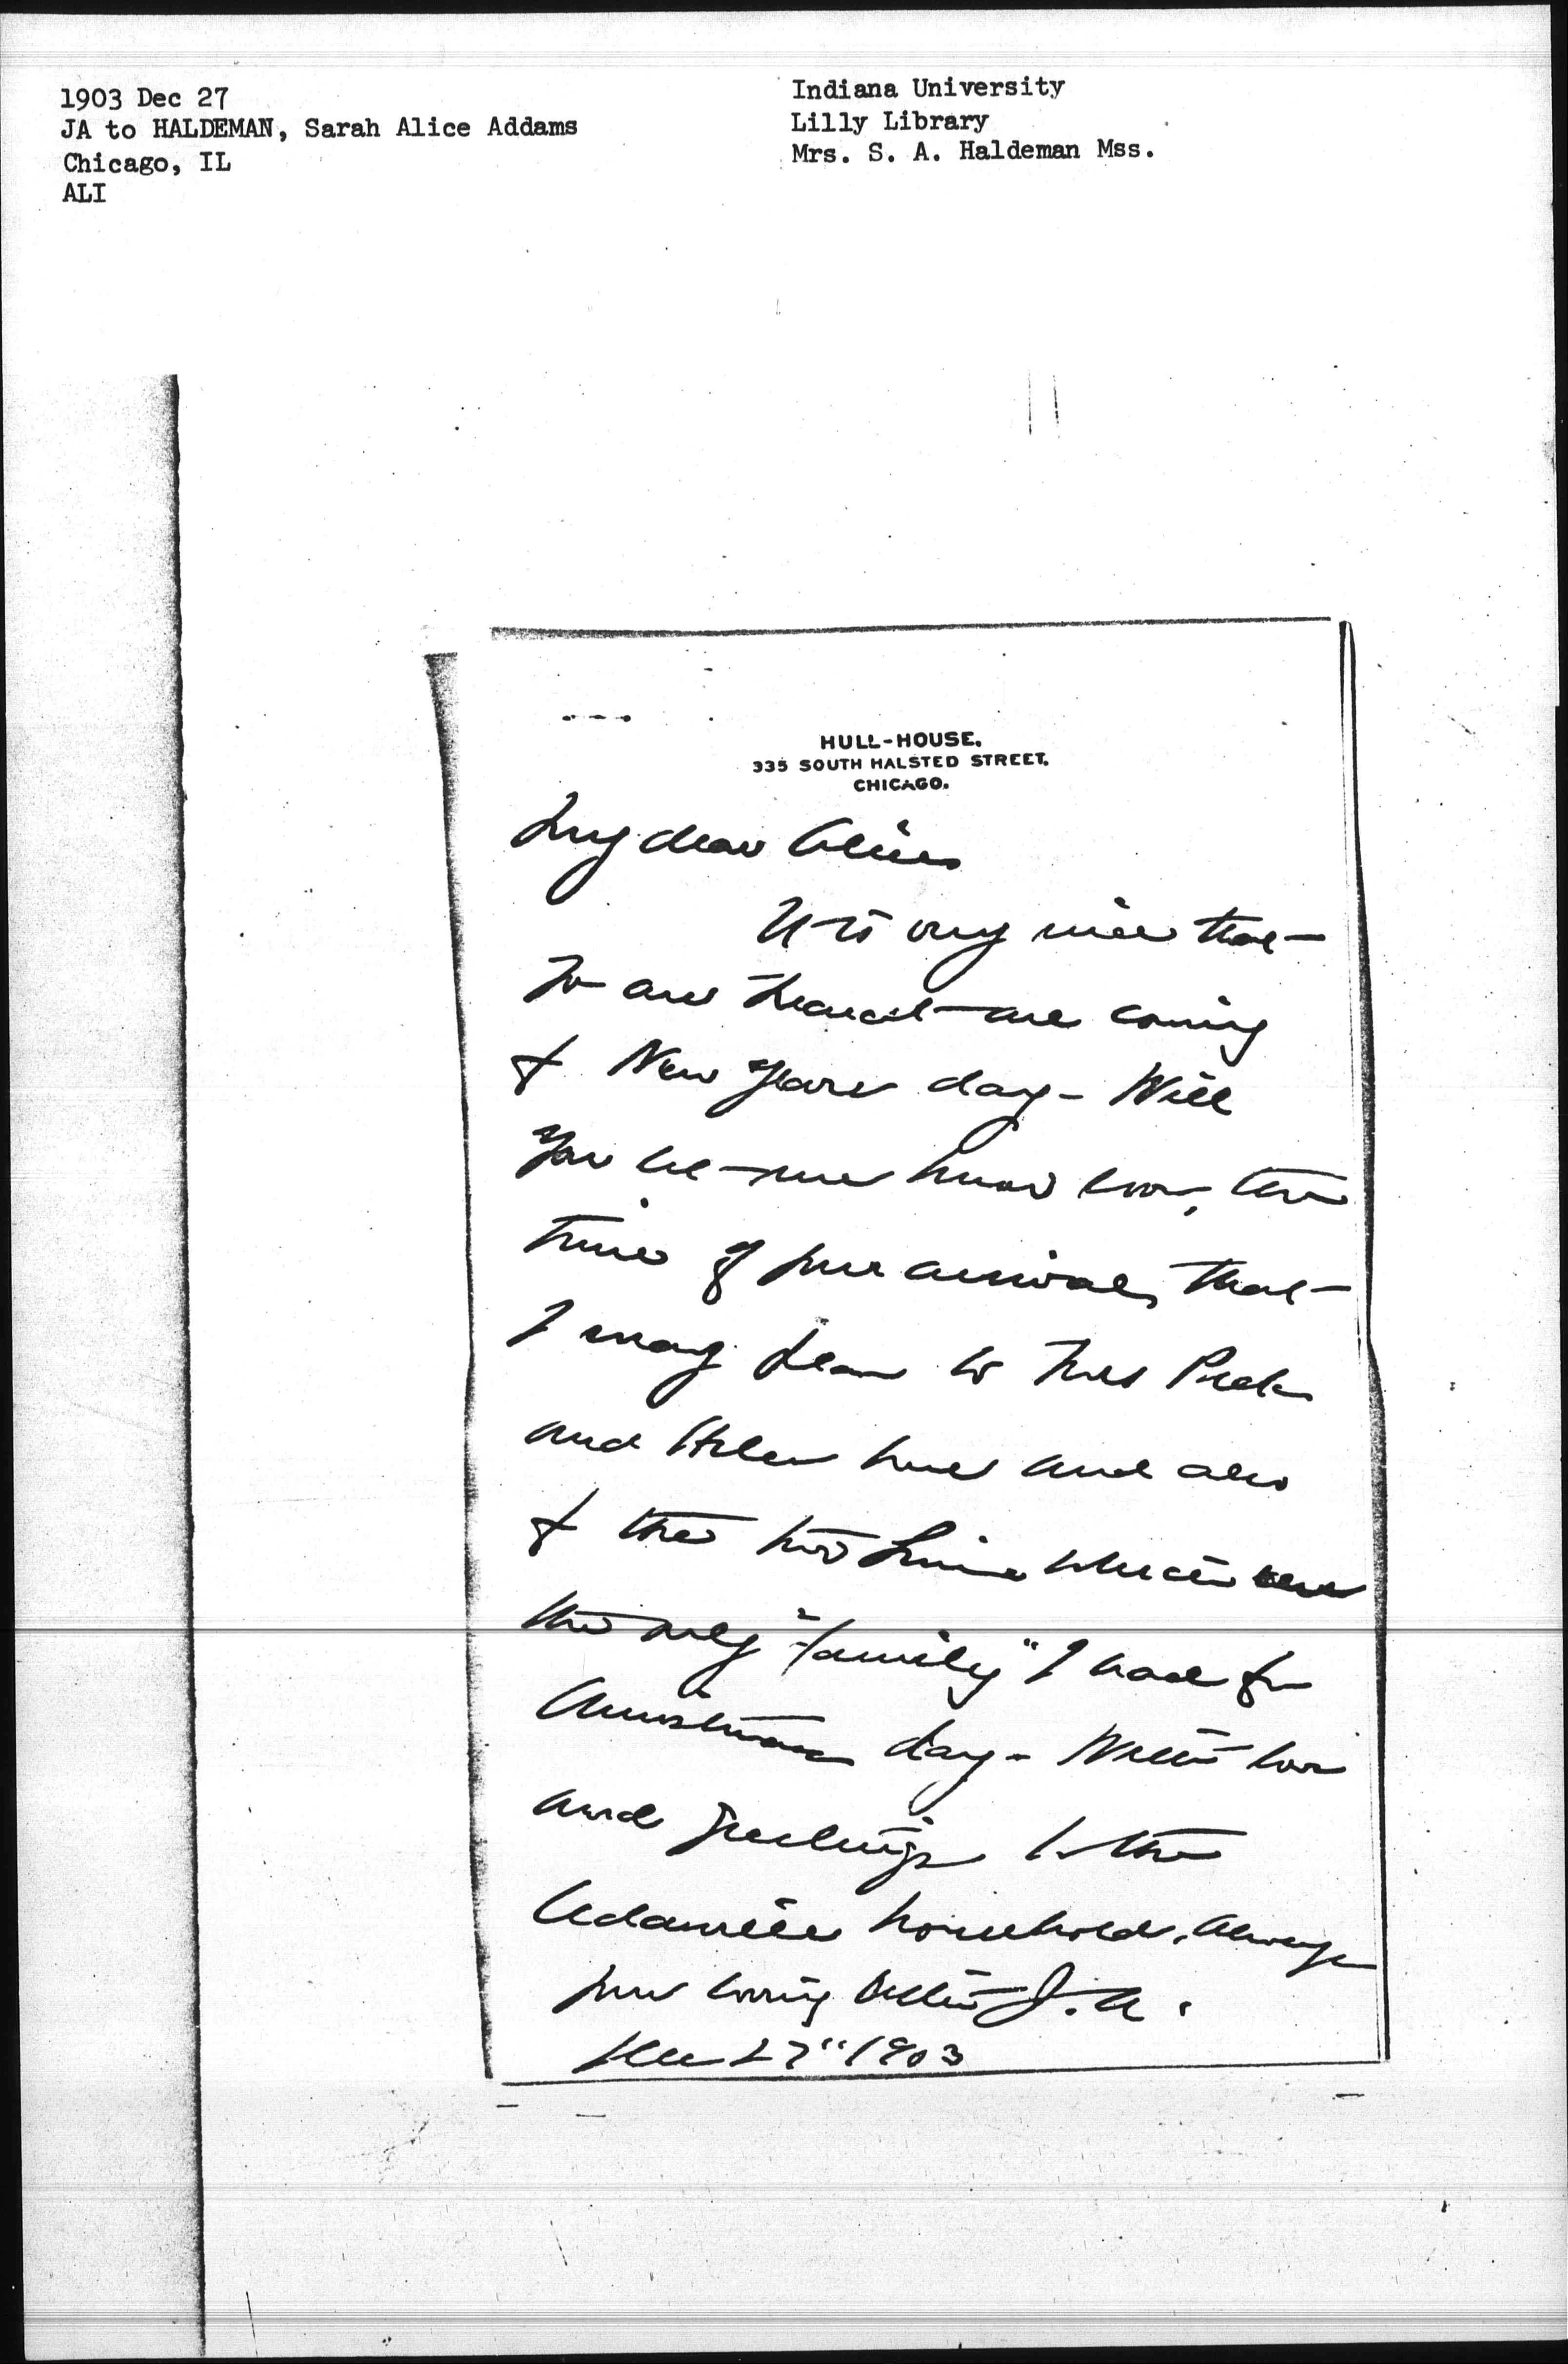 1903 Dec 27
JA to HALDEMAN, Sarah Alice Addams
Chicago, IL
ALI
Indiana University
Lilly Library
Mrs. S. A. Haldeman Mss.
HULL-HOUSE.
335 SOUTH HALSTED STREET,
CHICAGO.
My dear Alice
It is very nice that
are coming
New Years day - Will
you let me know the
time of your arrival, that
I may
and Helen and also
the two which
the only "family" I had for
Christmas day - With love
and greetings to the
household. Always
your loving Sister J. A.
Dec 27" 1903